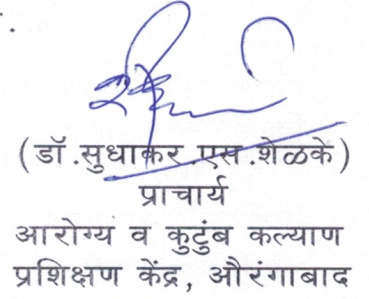 (डॉ.सुधाकर.एस.शेळके)
प्राचार्य
आरोग्य व कुटुंब कल्याण
प्रशिक्षण केंद्र, औरंगाबाद